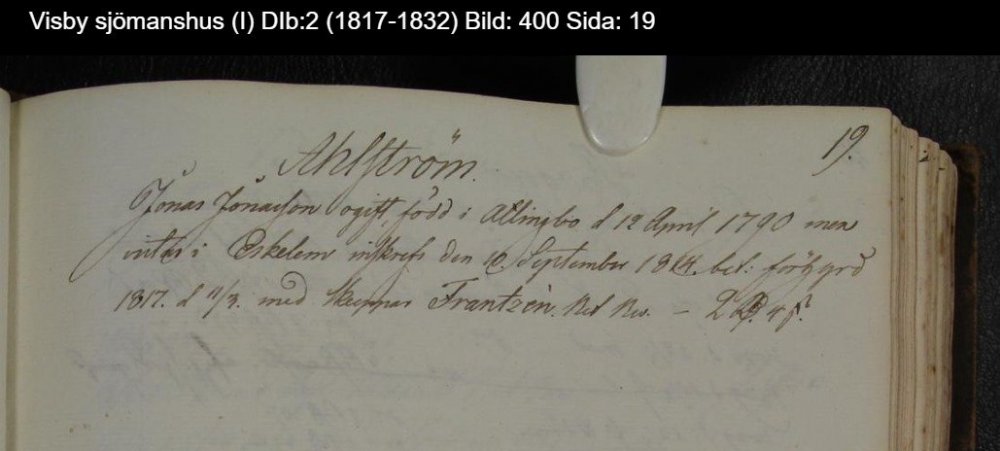 Visby sjömanshus (I) DIb:2 (1817-1832) Bild: 400 Sida: 19
19.
Ahlström.
Jonas Jönasson ogift, född i Allingbo d 12 April 1790 men
vistas i Eskelem inskrefs den 10. September 1814. bet:
1817. d 11/3. med Skeppar Frantzén. Red Res. – 2 4 ß.